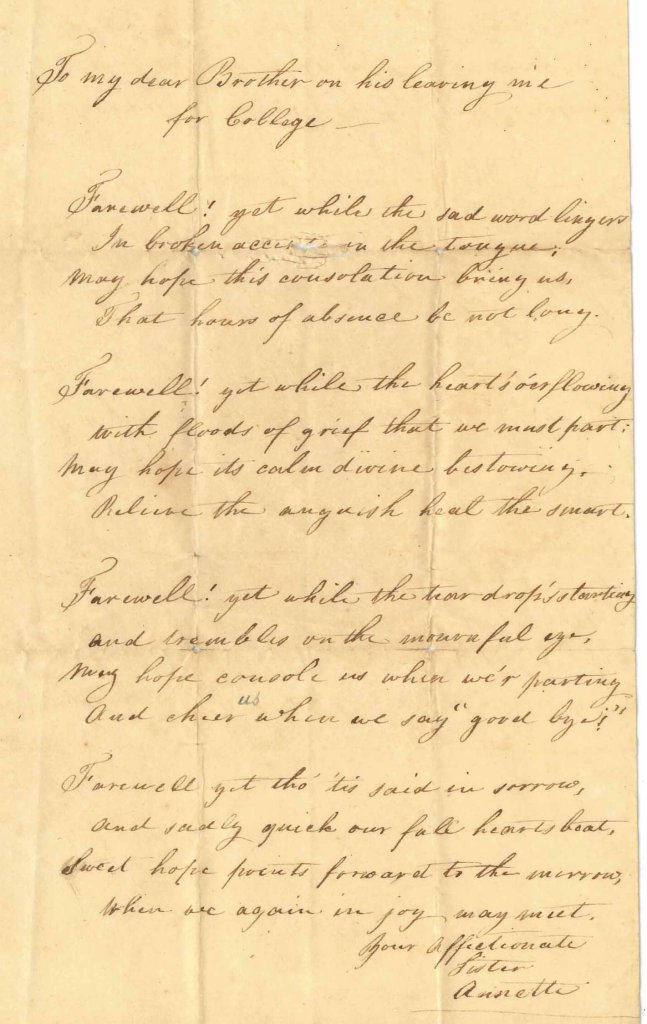 To my dear Brother on his leaving me
for College —
Farewell! yet while the sad word lingers
In broken accents on the tongue;
May hope this consolation bring us,
That hours of absence be not long.
Farewell! yet while the heart's o'erflowing
with floods of grief that we must part;
May hope its calm divine bestowing,
Relieve the anguish heal the smart.
Farewell! yet while the tear drop's starting
and trembles on the mournful eye,
May hope console us when we'r parting
And cheer us when we say "good bye!"
Farewell yet tho' 'tis said in sorrow,
and sadly quick our full hearts beat,
Sweet hope points forward to the morrow,
When we again in joy may meet.
Your Affectionate
Sister
Annette